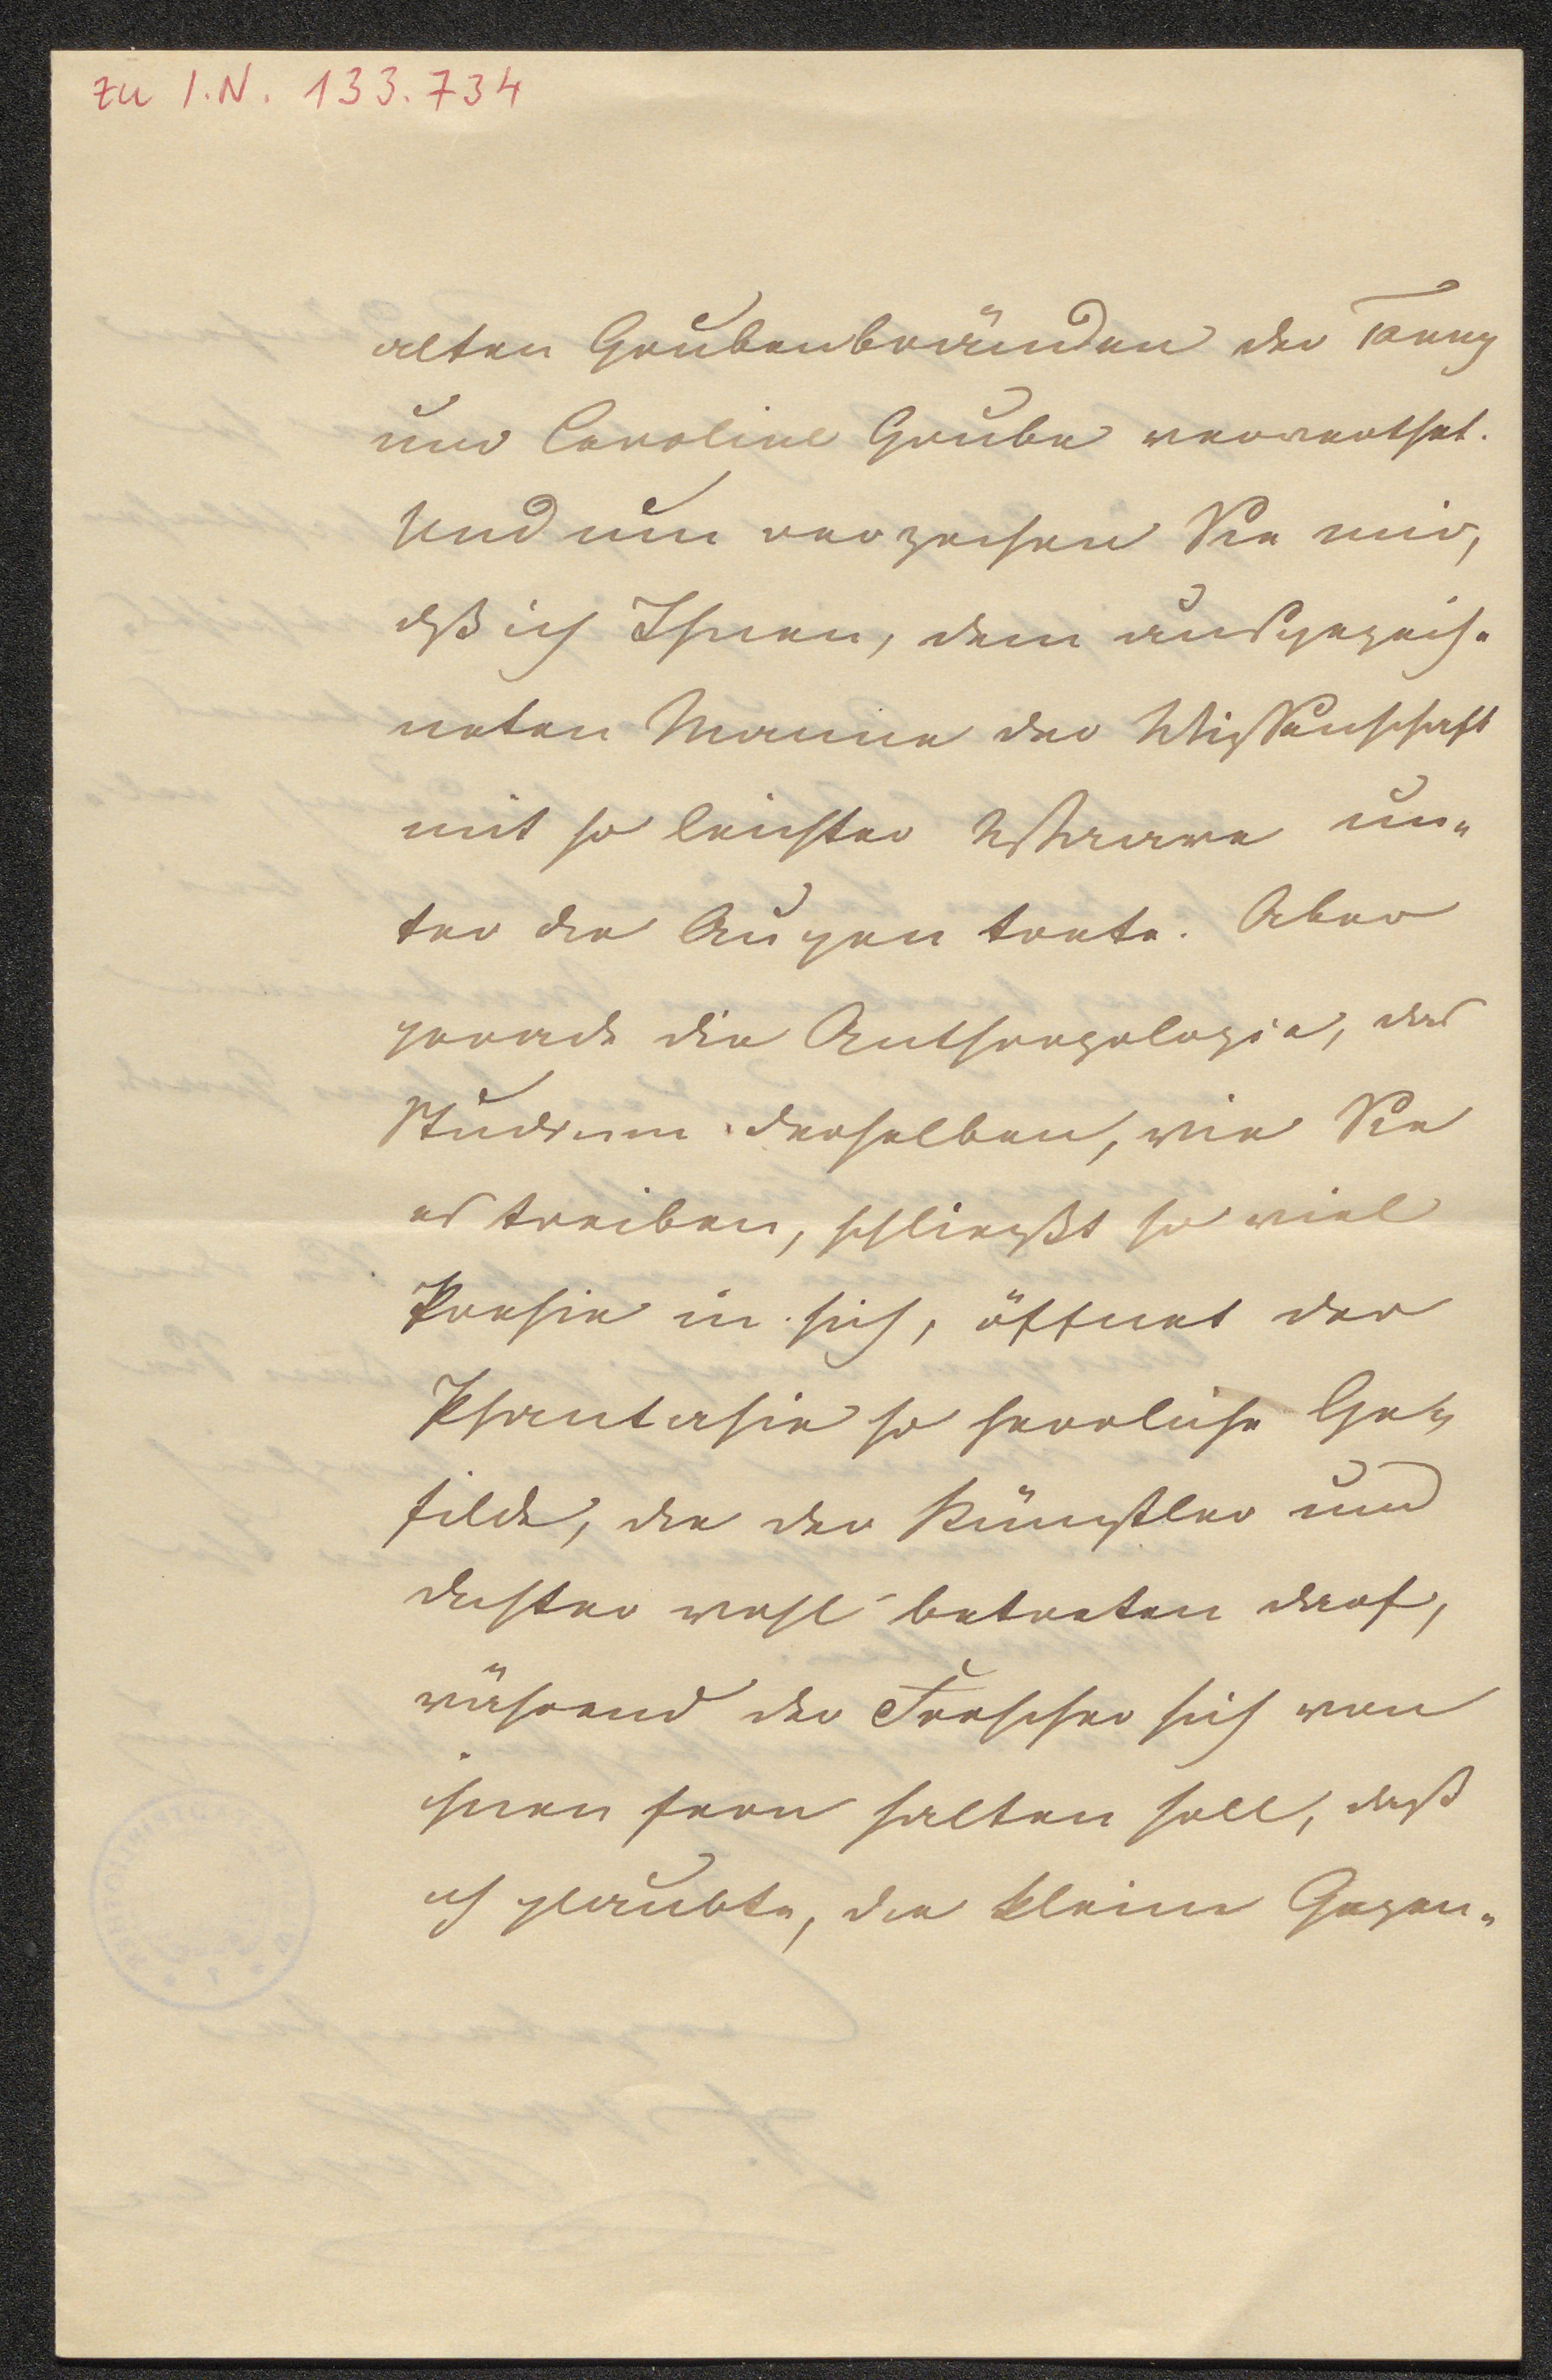 zu I.N. 133.734
alten Grubenbränden der Fanny
und Caroline Grube verwerthet.
Und nun verzeihen Sie mir,
daß ich Ihnen, dem ausgezeich-
neten Manne der Wissenschaft
mit so leichter Waare un-
ter die Augen trete. Aber
gerade die Anthropologie, das
Studium derselben, wie Sie
es treiben, schließt so viel
Poesie in sich, öffnet der
Phantasie so herrliche Ge-
filde, die der Künstler und
Dichter wohl betreten darf,
während der Forscher sich von
ihnen fern halten soll, daß
ich glaubte, die kleine Gegen-